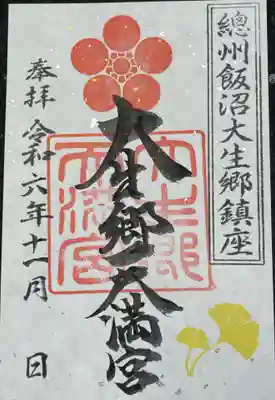 總州飯沼大生郷鎮座
大生郷天満宮
奉拝 令和六年十一月 日